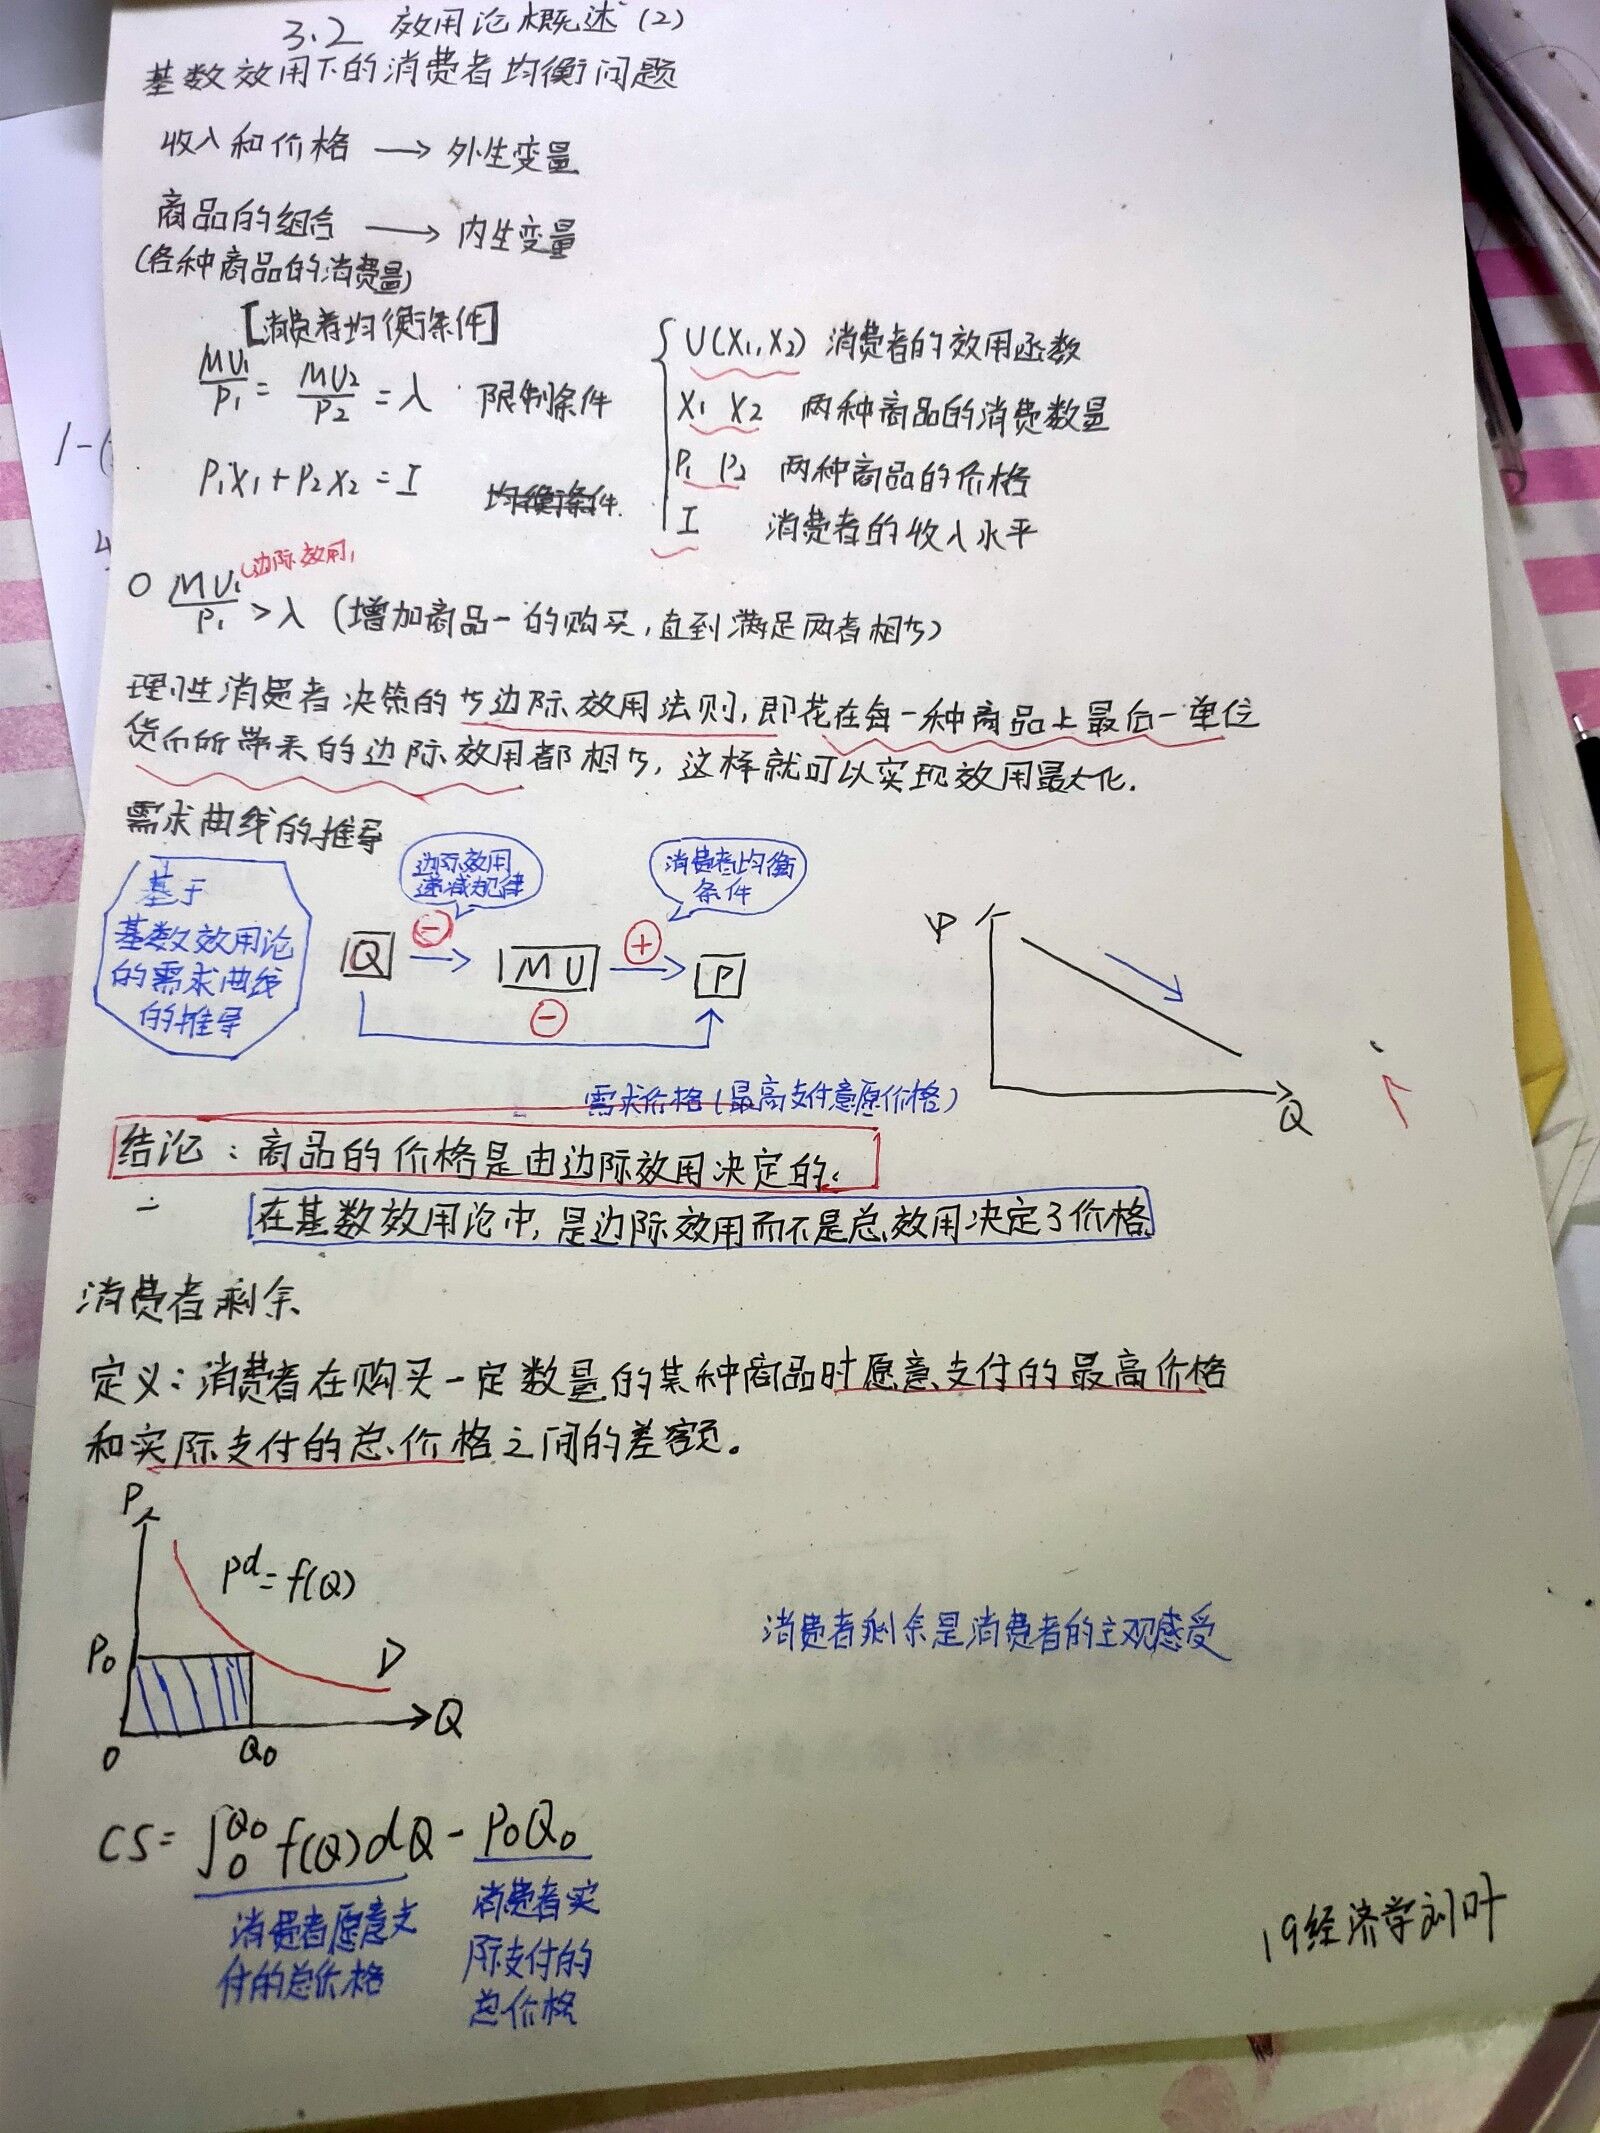 3.2 效用论概述(2)
基数效用下的消费者均衡问题
收入和价格 → 外生变量
商品的组合 → 内生变量
(各种商品的消费量)
[消费者均衡条件]
MU₁/P₁ = MU₂/P₂ = λ 限制条件
P₁X₁+P₂X₂=I 均衡条件.
U(X₁,X₂) 消费者的效用函数
X₁ X₂ 两种商品的消费数量
P₁ P₂ 两种商品的价格
I 消费者的收入水平
(边际效用)
○ MU₁/P₁ > λ (增加商品一的购买,直到满足两者相等)
理性消费者决策的等边际效用法则,即花在每一种商品上最后一单位
货币所带来的边际效用都相等,这样就可以实现效用最大化.
需求曲线的推导
基于
基数效用论
的需求曲线
的推导
边际效用
递减规律
消费者均衡
条件
Q ⊖→ MU ⊕→ P
⊖
P
Q
需求价格(最高支付意愿价格)
结论:商品的价格是由边际效用决定的.
在基数效用论中,是边际效用而不是总效用决定了价格
消费者剩余
定义:消费者在购买一定数量的某种商品时愿意支付的最高价格
和实际支付的总价格之间的差额。
P
Pᵈ=f(Q)
P₀
D
O Q₀ Q
消费者剩余是消费者的主观感受
CS=∫₀^Q₀ f(Q)dQ - P₀Q₀
消费者愿意支
付的总价格
消费者实
际支付的
总价格
19经济学刘叶
1-(